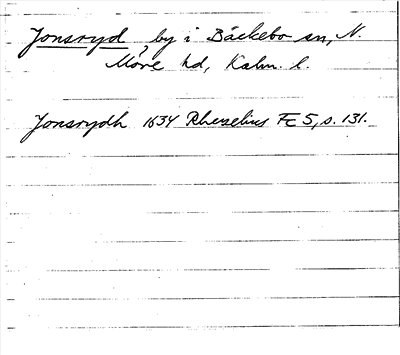 Jonsryd, by i Bäckebo sn, N.
Möre hd, Kalm. l.
Jonsrydh 1634 Rhezelius FE 5, s. 131.